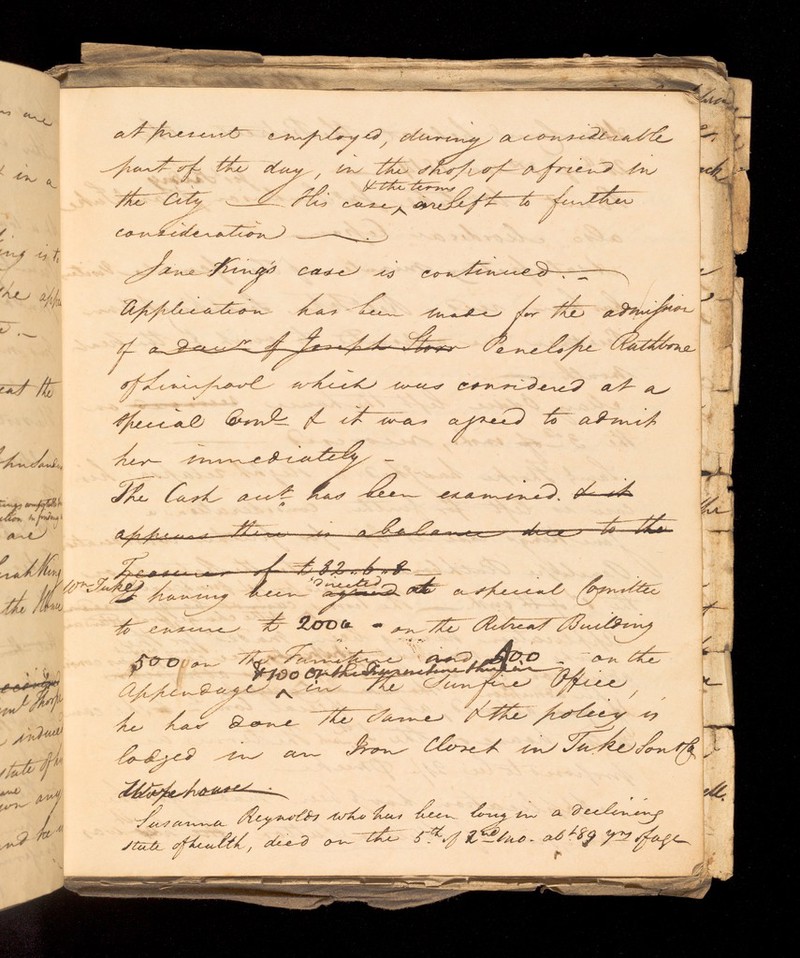 at present employed, during a considerable
part of the day, in the shop of a friend in
the City — His case & the terms are left to further
consideration —.
Jane King's case is continued. —
Application has been made for the admission
of a daur of Joseph Storr Penelope Rathbone
of Liverpool which was considered at a
special Comte & it was agreed to admit
her immediately –
The Cash acct has been examined. & it
appears there is a balance due to the
Treasurer of £32..6..8
Wm Tuke having been directed at a special Committee
to ensure £2000 - on the Retreat Building
500 on the Furniture and 400 - on the
Appendage & 100 on the Furniture in the Sunfire Office,
he has done the same & the policy is
lodged in an Iron Closet in Tuke Son & Co
Warehouse.
Susanna Reynolds who has been long in a declining
state of health, died on the 5th of 2nd mo. abt 89 yrs of age
are
in a
is
the
the
are
the
any